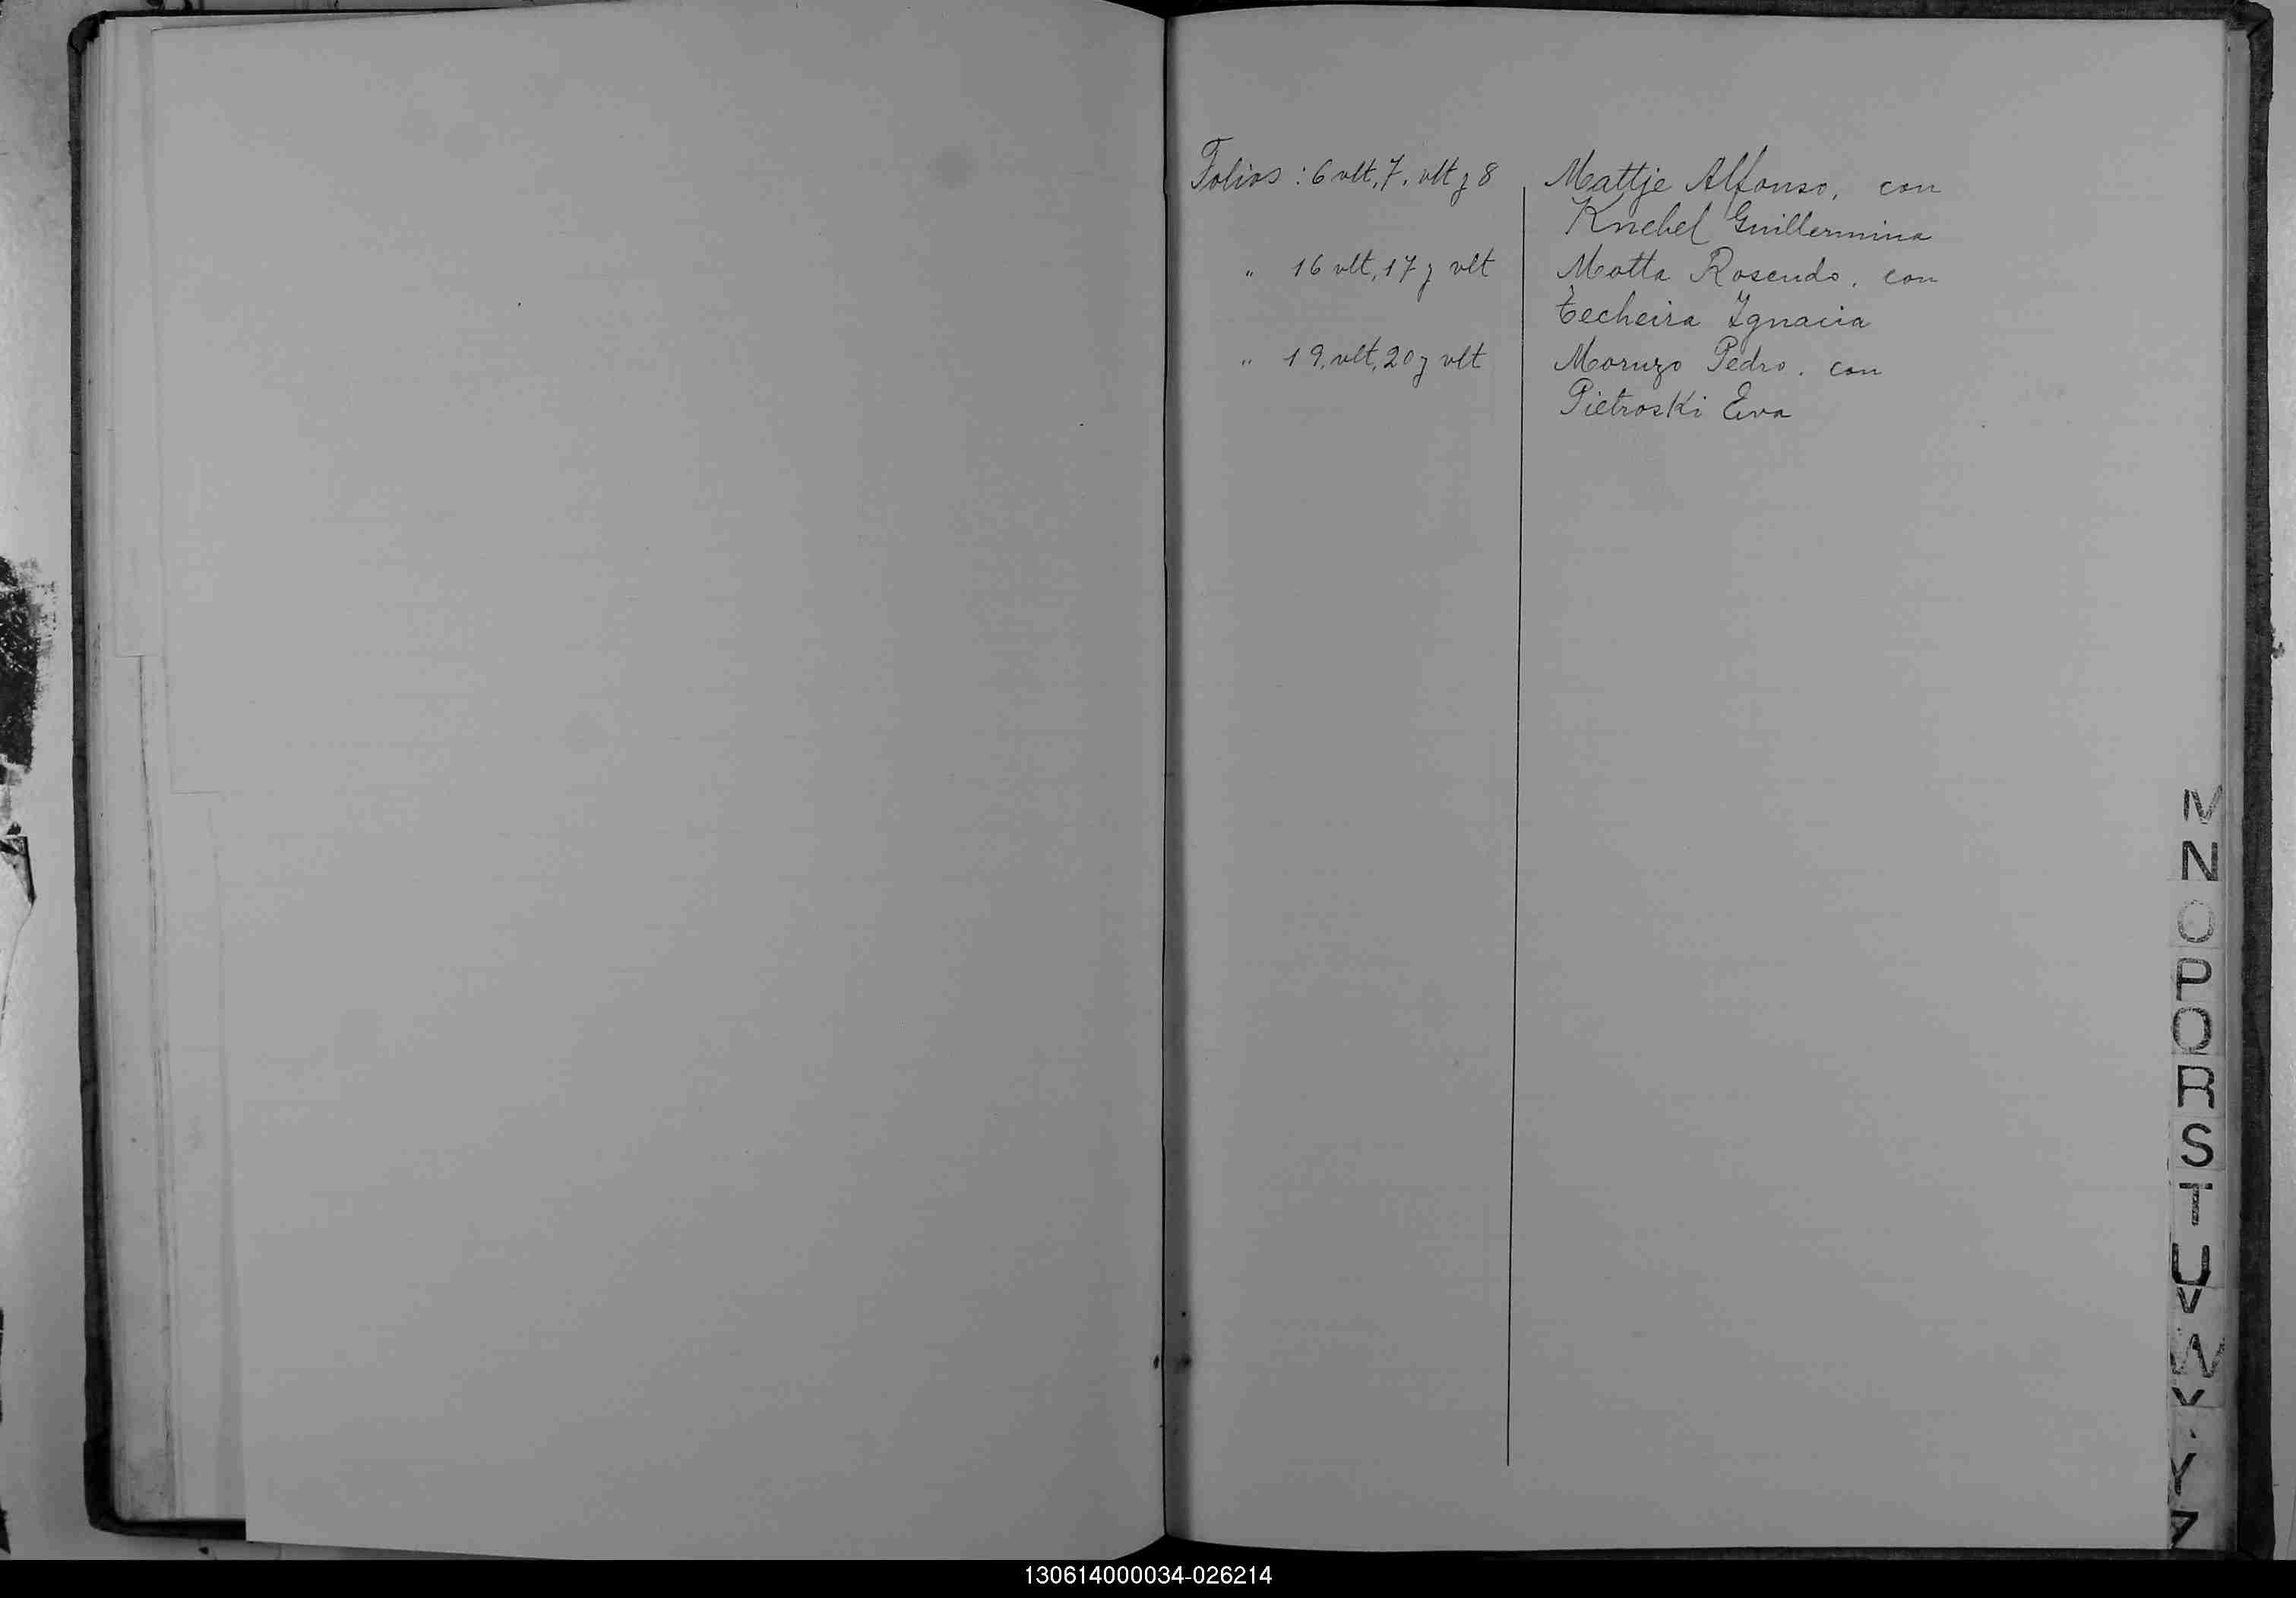 Folios : 6 vlt, 7, vlt y 8 Mattje Alfonso, con
Knebel Guillermina
" 16 vlt, 17 y vlt Motta Rosendo, con
Techeira Ignacia
" 19, vlt, 20 y vlt Moruzo Pedro, con
Pietroski Eva
M
N
O
P
Q
R
S
T
U
V
W
Y
Z
130614000034-026214